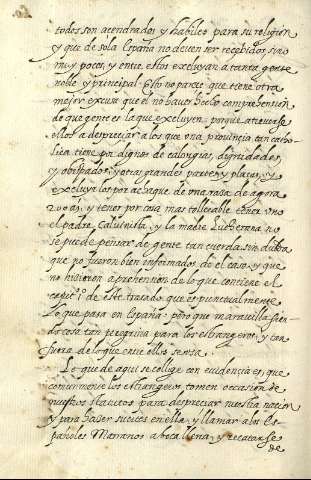 todos son acendrados y habiles para su religion
y que de sola España no deven ser recebidos sino
muy pocos, y entre estos excluyan a tanta gente
noble y principal. Esto no parece que tiene otra
mejor excusa que el no haver hecho comprehension
de que gente es la que excluyen. porque atreverse
ellos a despreciar a los que una provincia tan catho-
lica tiene por dignos de calongias, dignidades,
y obispados, y otras grandes partes y plaças, y
excluyrlos por achaque de una raza de agora
200 añ. y tener por cosa mas tollerable tener uno
el padre Calvinista, y la madre Lutherana no
se puede pensar de gente tan cuerda sin dubda
que no fueron bien informados de el caso, y que
no hisieron aprehension de lo que contiene el
cape. 1º de este tratado que es puntualmente
lo que pasa en España: pero que maravilla sien-
do cosa tan peregrina para los estrangeros, y tan
fuera de lo que entre ellos se usa.
Lo que de aqui se collige con evidencia es, que
comunmente los estrangeros tomen occasion de
nuestros statutos para despreciar nuestra nacion
y para haser juicios en ella, y llamar a los Es-
pañoles Marranos a boca llena, y recatarse
de